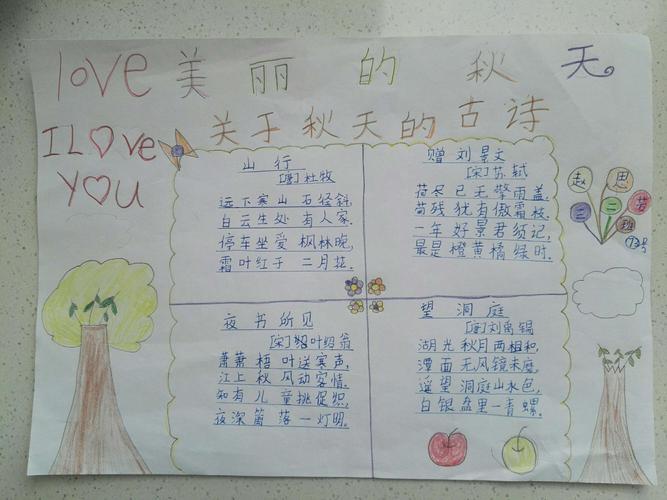 love 美丽的秋天
关于秋天的古诗
I Love
YOU
山行
[唐]杜牧
远下寒山 石径斜,
白云生处 有人家.
停车坐爱 枫林晚,
霜叶红于 二月花.
赠刘景文
[宋]苏轼
荷尽已无擎雨盖,
菊残犹有傲霜枝.
一年好景君须记,
最是橙黄橘绿时.
夜书所见
[宋]叶绍翁
萧萧梧叶送寒声,
江上秋风动客情.
知有儿童挑促织,
夜深篱落一灯明.
望洞庭
[唐]刘禹锡
湖光秋月两相和,
潭面无风镜未磨.
遥望洞庭山水色,
白银盘里一青螺.
赵思
三二班